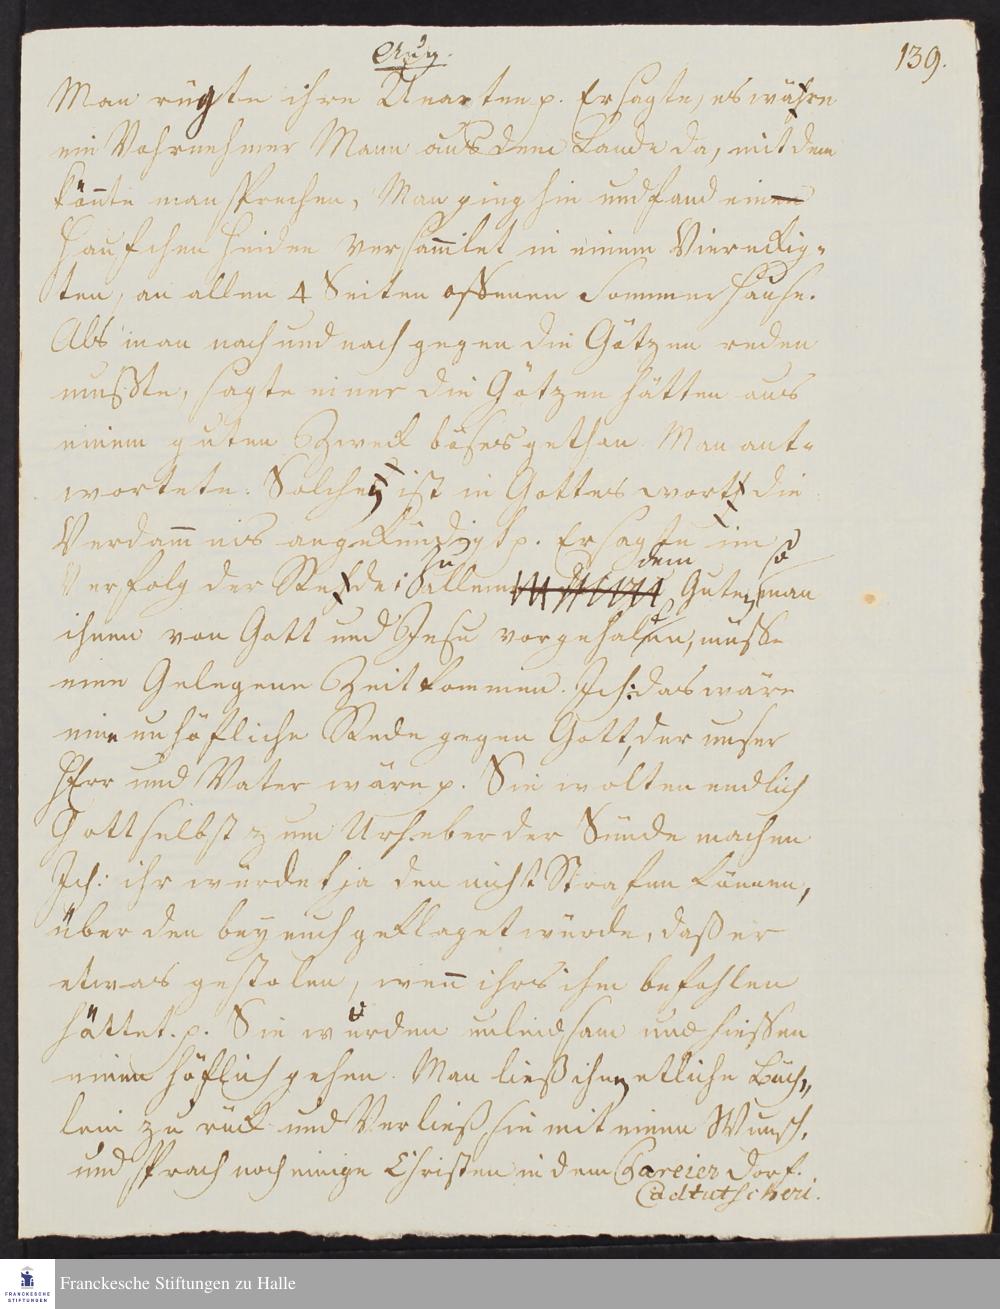 Aug.
139.
Man rügte ihre Unarten p. Er sagte, es währe
ein Vohrnehmer Mann aus dem Lande da, mit dem
könnte man sprechen, Man ging hin und fand ein
Häufchen Heiden versammlet in einem Viereckig-
ten, an allen 4 Seiten offenen Sommer Hause.
Als man nach und nach gegen die Götzen reden
muste, sagte einer die Götzen hätten aus
einem guten Zweck böses gethan. Man ant-
wortete: Solchen ist in Gottes wort die
Verdamnis angekündigt p. Er sagte im
Verfolg der Rede: zu allem dem Guten, so man
ihnen von Gott und Jesu vorgehalten, müsse
eine Gelegene Zeit kommen. Ich: das wäre
eine unhöfliche Rede gegen Gott, der unser
Herr und Vater wäre p. Sie wolten endlich
Gott selbst zum Urheber der Sünde machen
Ich: ihr würdet ja den nicht Strafen können,
über den bey euch geklaget würde, daß er
etwas gestolen, wenn ihrs ihm befohlen
hättet. p. Sie würden unleidsam und hiessen
einen höflich gehen. Man ließ ihnen etliche Büch,,
lein zurück und Verließ sie mit einem Wunsch,
und sprach noch einige Christen in dem Careier Dorf.
Cadtutscheri.
Franckesche Stiftungen zu Halle
FRANCKESCHE
STIFTUNGEN